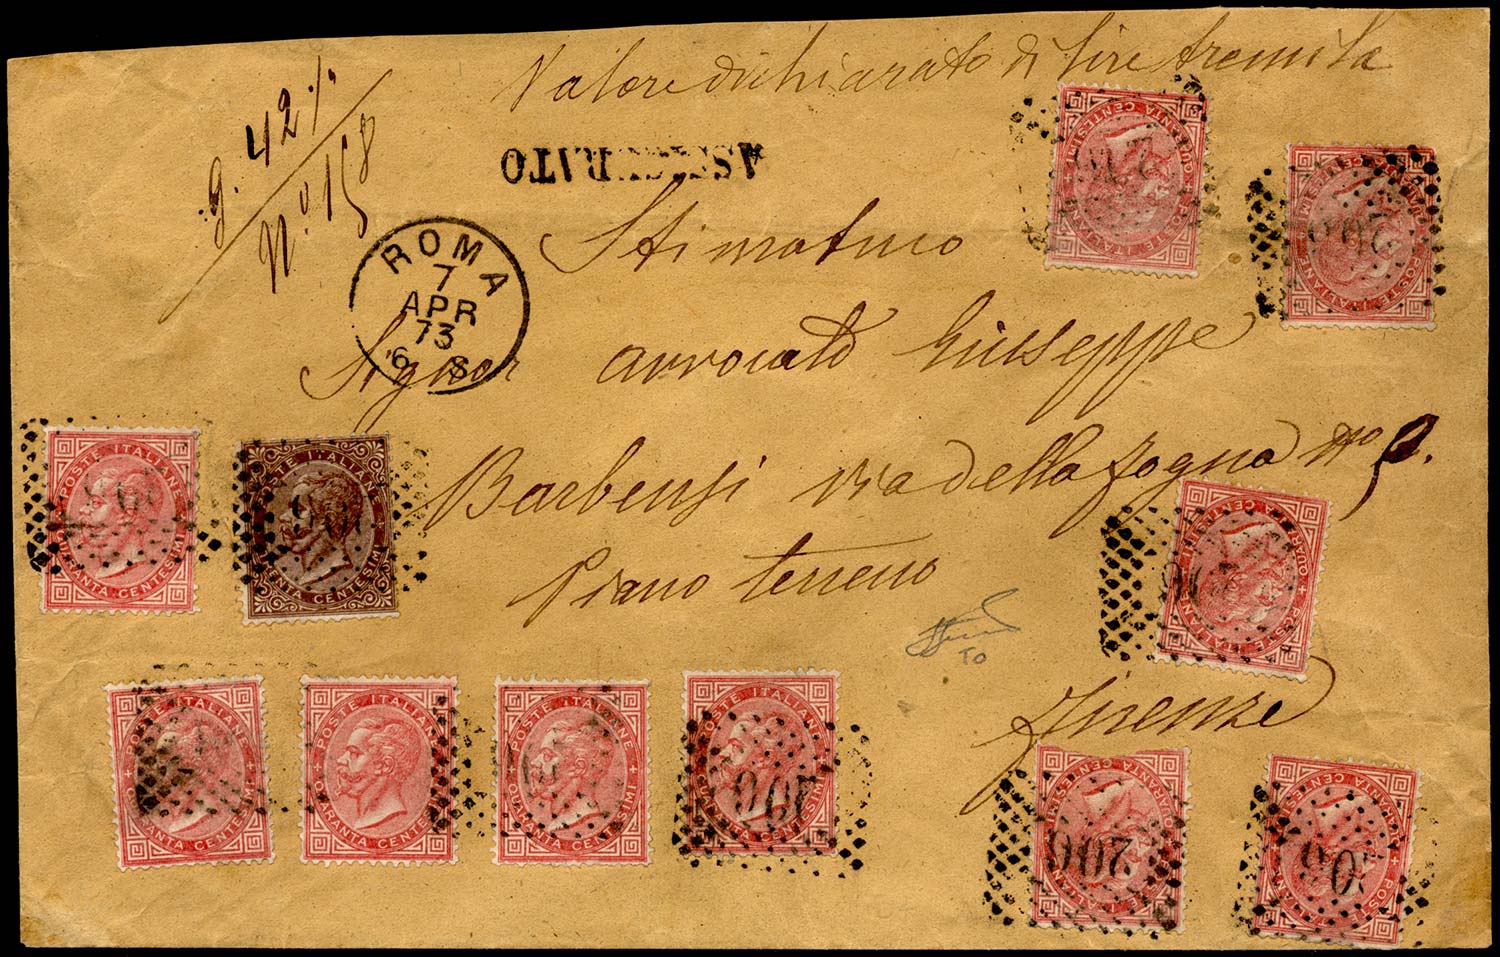 Valore dichiarato di lire tremila
g. 42 ½
N.º 158
ASSICURATO
ROMA
7
APR
73
6 S
Stimatmo
Signor avvocato Giuseppe
Barbensi via della fogna No 5.
Piano terreno
Firenze
TO
POSTE ITALIANE
QUARANTA CENTESIMI
POSTE ITALIANE
QUARANTA CENTESIMI
POSTE ITALIANE
QUARANTA CENTESIMI
POSTE ITALIANE
TRENTA CENTESIMI
POSTE ITALIANE
QUARANTA CENTESIMI
POSTE ITALIANE
QUARANTA CENTESIMI
POSTE ITALIANE
QUARANTA CENTESIMI
POSTE ITALIANE
QUARANTA CENTESIMI
POSTE ITALIANE
QUARANTA CENTESIMI
POSTE ITALIANE
QUARANTA CENTESIMI
POSTE ITALIANE
QUARANTA CENTESIMI
206
206
206
206